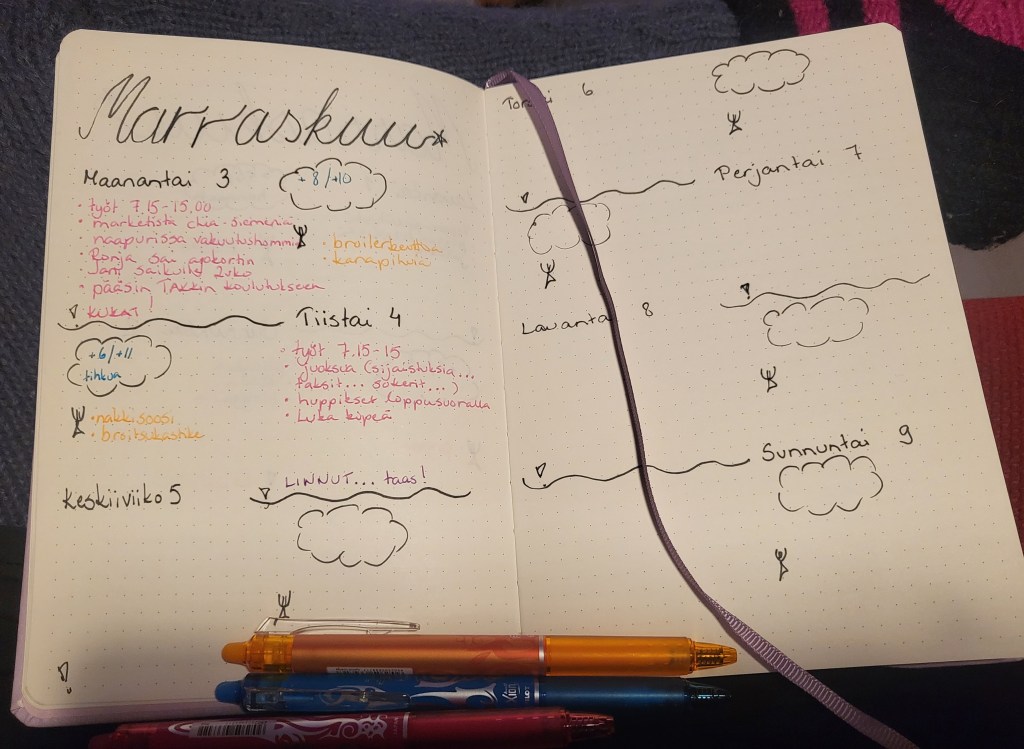 Marraskuu
Maanantai 3
+8/+10
• työt 7.15-15.00
• marketista chia-siemeniä
• naapurissa vakuutushommia
• Ronja sai ajokortin
• Jani saikulla
• pääsin TAKKin koulutukseen
!
KUKAT
• broilerkeittoa
• kanapihviä
Tiistai 4
+6/+11
tihkua
• työt 7.15-15
• juoksua (sijaistuksia...
taksit... sokerit...)
• huppikset loppusuoralla
• Luka kipeä
• nakkisoosi
• broitsukastike
LINNUT... taas!
Keskiiviiko 5
6
Perjantai 7
8
Sunnuntai 9